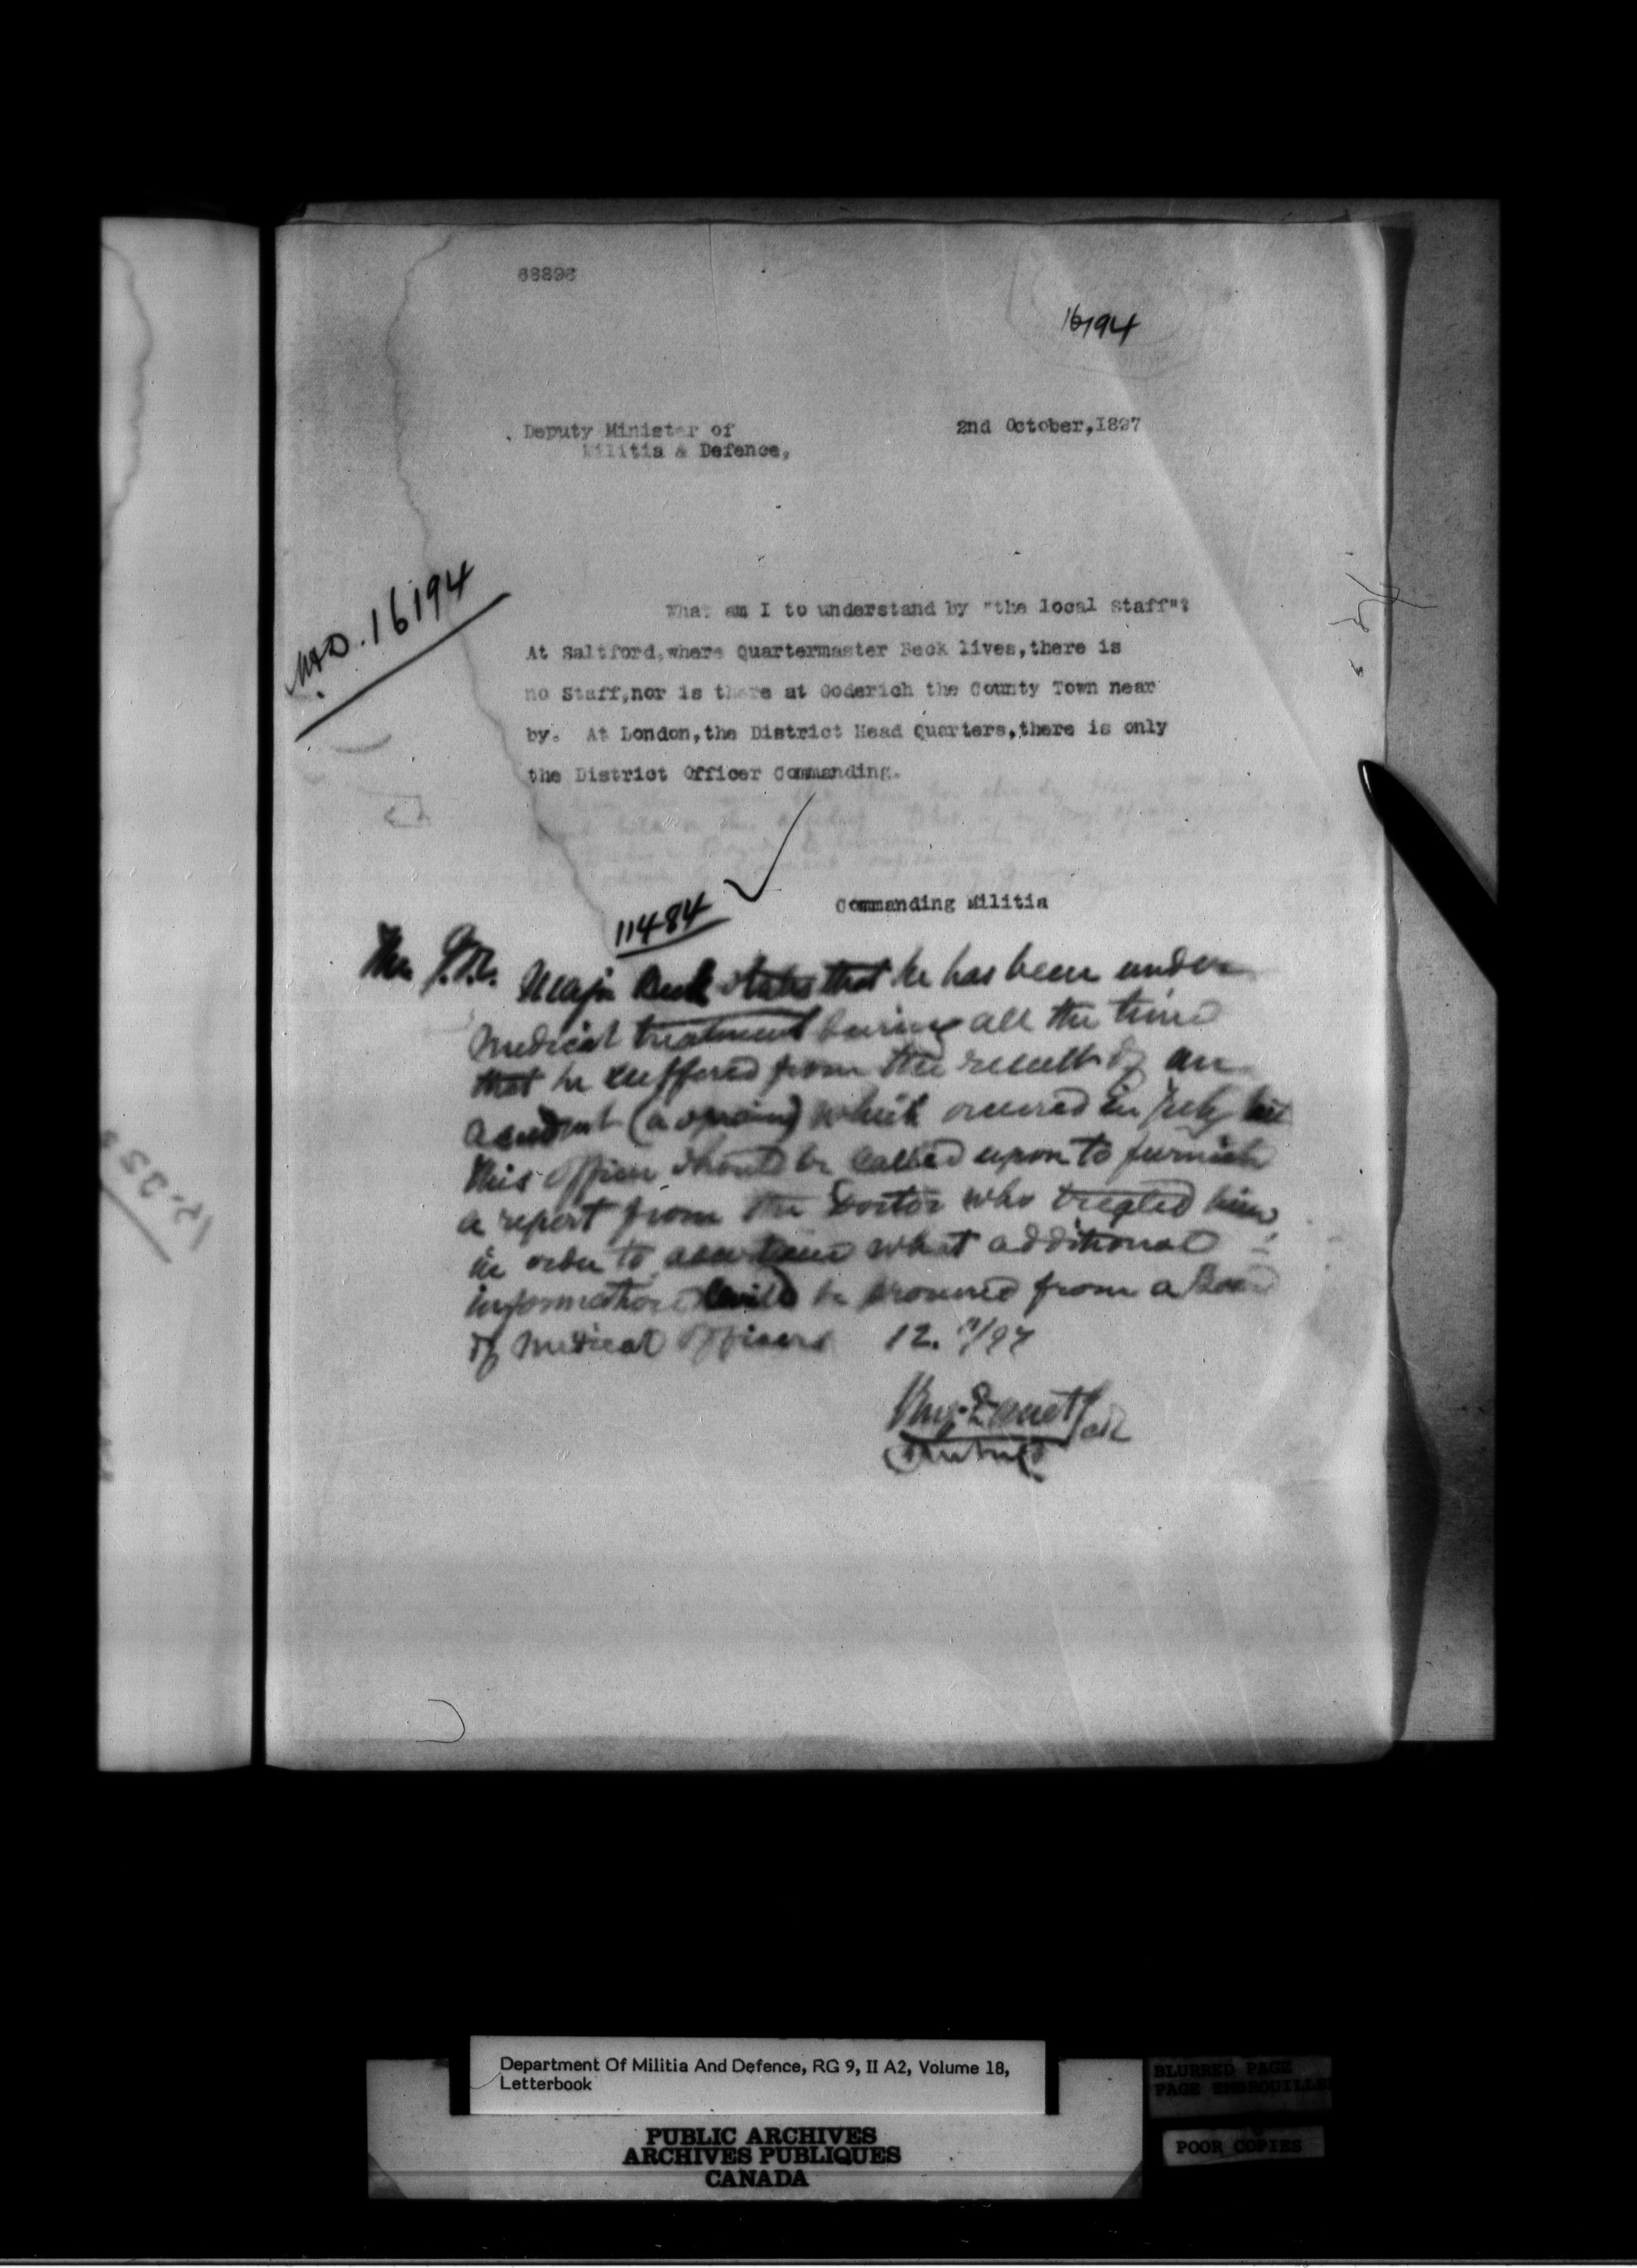 68896
16194
Deputy Minister of
Militia & Defence,
2nd October,1897
What am I to understand by "the local Staff"?
At Saltford,where Quartermaster Beck lives,there is
no Staff,nor is there at Goderich the County Town near
by. At London,the District Head Quarters,there is only
the District Officer Commanding.
No. 16194
Commanding Militia
11484
Major Beck states that he has been under
medical treatment during all the time
that he suffered from the result of an
accident (a sprain) which occured in July last
this officer should be called upon to furnish
a report from the Doctor who treated him
in order to ascertain what additional
information could be procured from a Board
of medical officers 12. /97
Department Of Militia And Defence, RG 9, II A2, Volume 18,
Letterbook
PUBLIC ARCHIVES
ARCHIVES PUBLIQUES
CANADA
BLURRED PAGE
PAGE EMBROUILLE
POOR COPIES